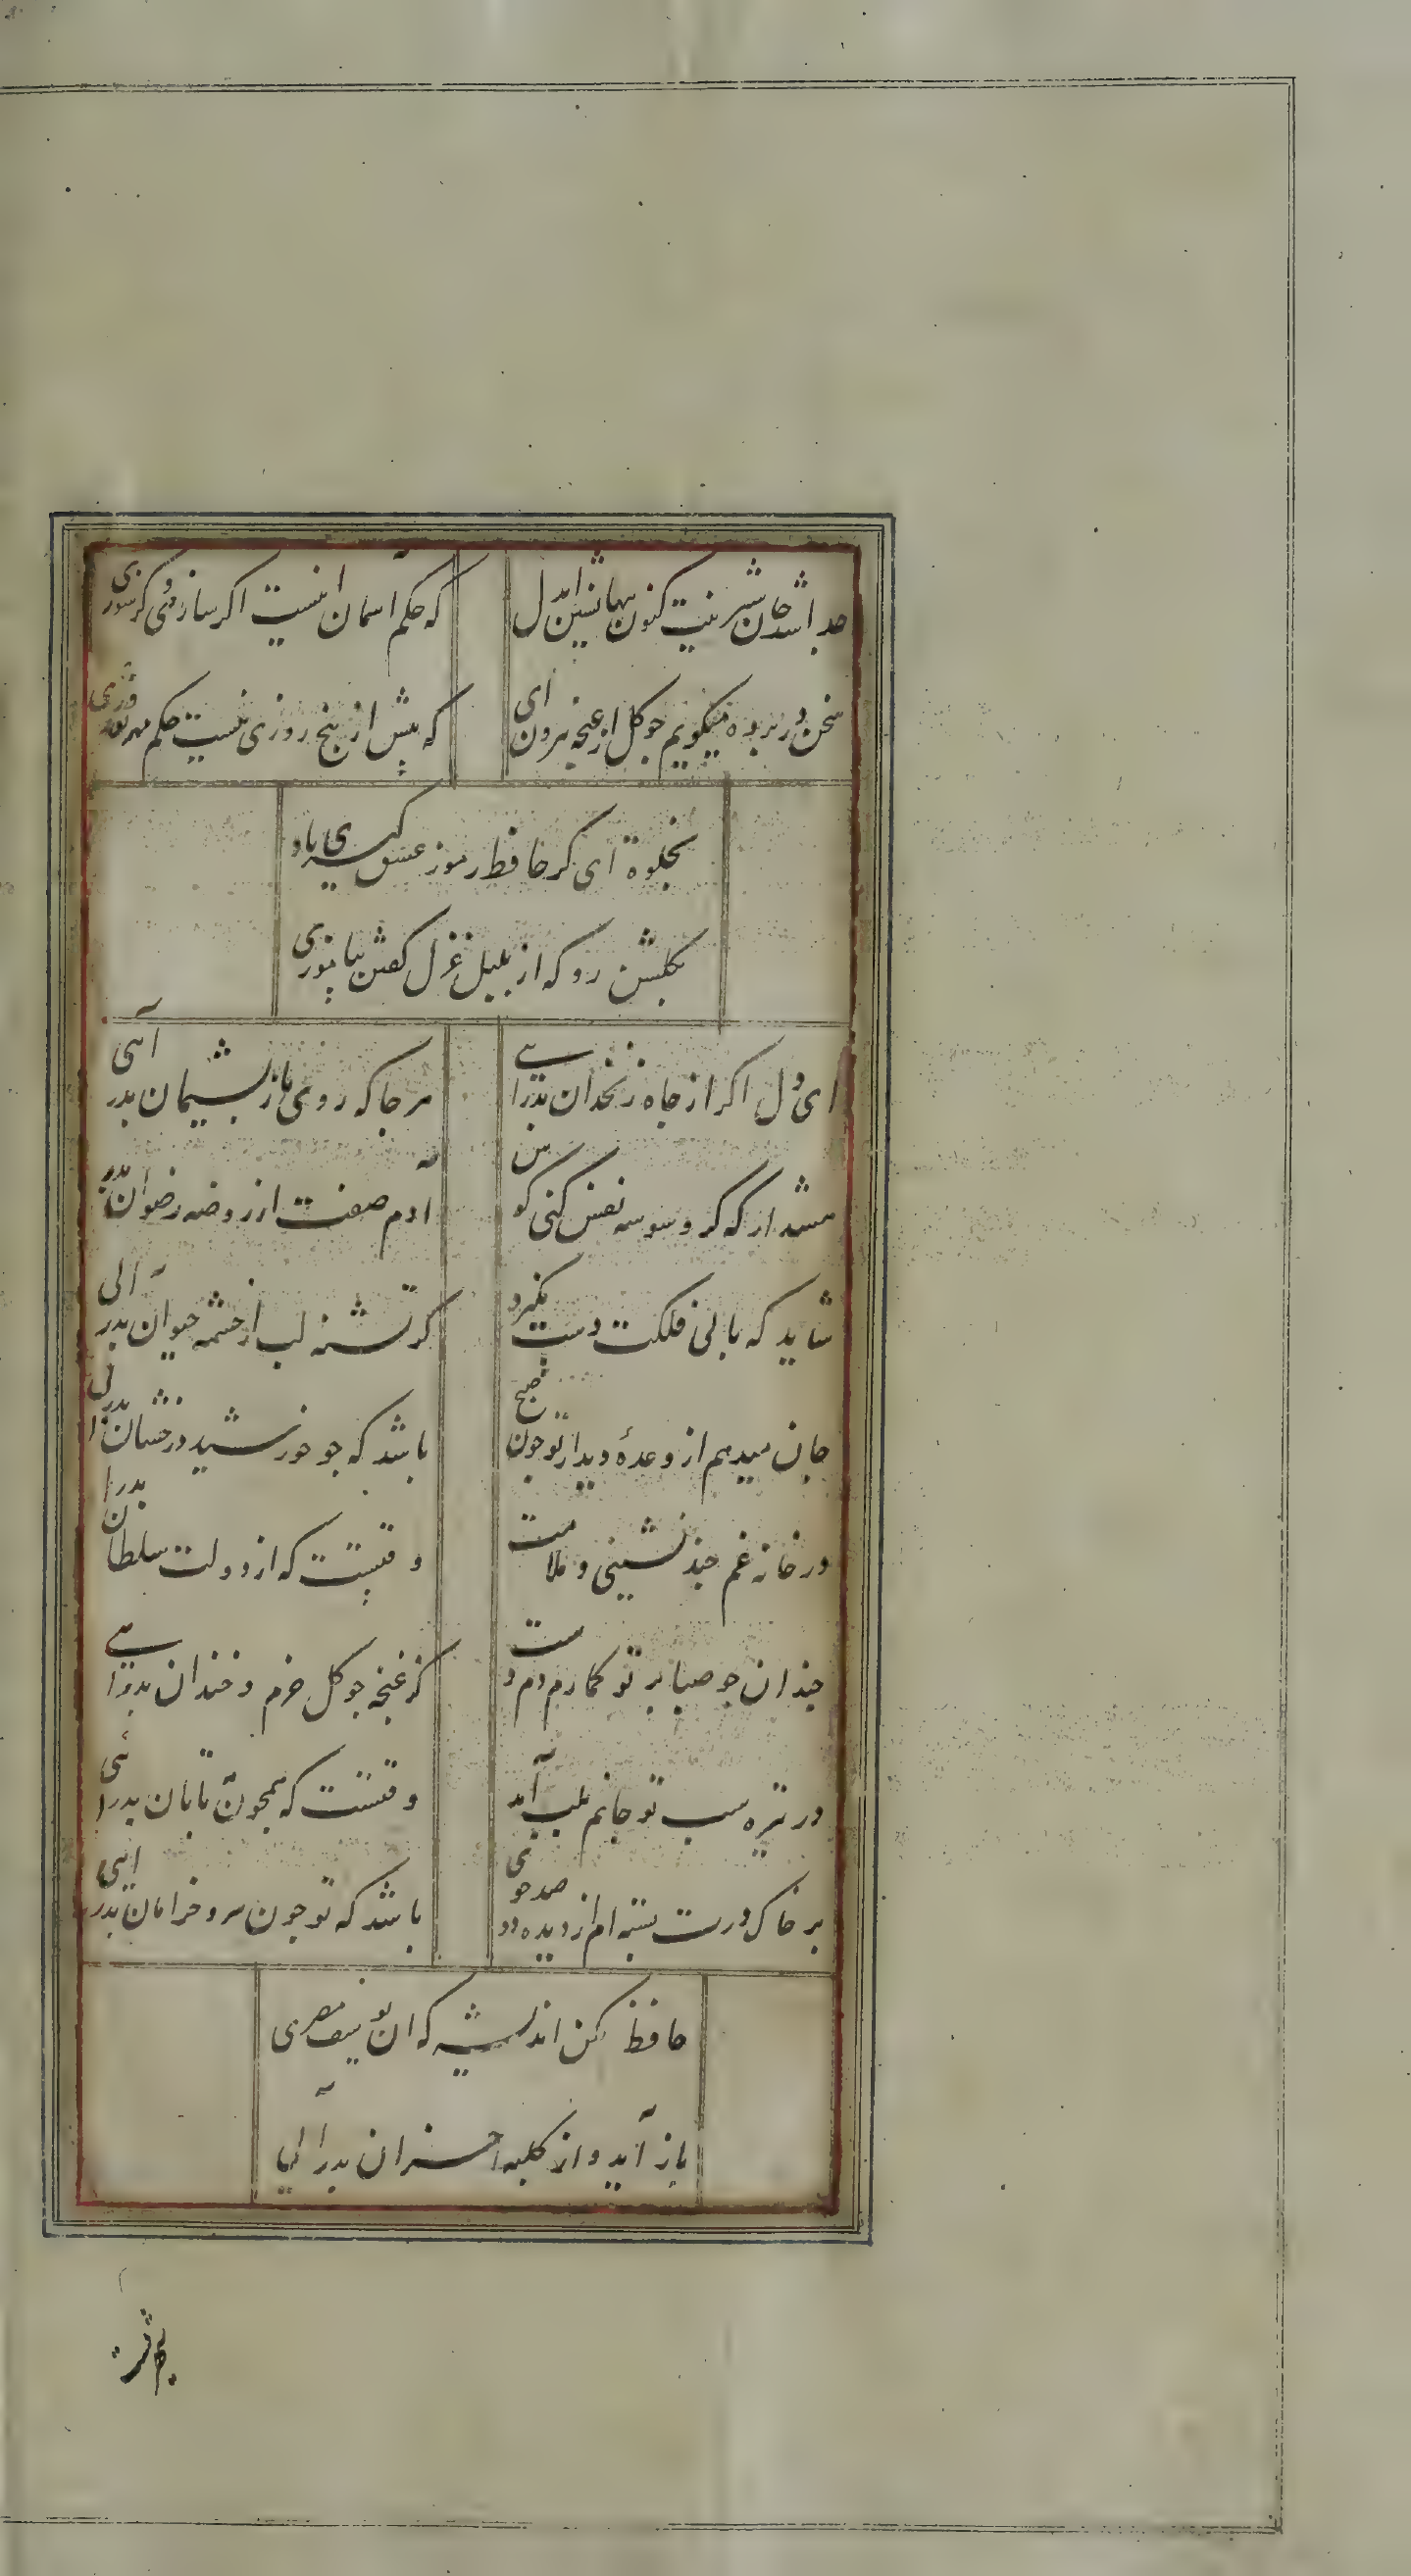 جدا شد جان شیرینت کنون تنها نشین ایدل
که حکم آسمان اینست اگر سازی و گر سوزی
سخن در پرده میگویم چو گل از غنچه بیرون ای
که بیش از پنج روزی نیست حکم میر نوروزی
بخلوة ای گر حافظ رموز عشق کسی یاد
بگلشن رو که از بلبل غزل گفتن بیاموزی
ای دل اگر از چاه زنخدان بدرآیی
هر جا که روی باز پشیمان بدر آیی
هشدار که گر وسوسه نفس کنی گوش
آدم صفت از روضه رضوان بدر آیی
شاید که بآبی فلکت دست نگیرد
گر تشنه لب از چشمه حیوان بدر آئی
جان میدهم از وعدهٔ دیدار تو چون صبح
باشد که چو خورشید درخشان بدرآئی
در خانه غم چند نشینی و ملامت
وقتیست که از دولت سلطان بدرا
چندان چو صبا بر تو گمارم دم همت
کز غنچه چو گل خرم و خندان بدرآیی
در تیره شب تو جانم بلب آمد
وقتست که همچون تابان بدرائی
بر خاک درت بسته ام از دیده دو صد جوی
باشد که تو چون سرو خرامان بدرایی
حافظ مکن اندیشه که ان یوسف مصری
باز آید و از کلبه احزان بدر آئی